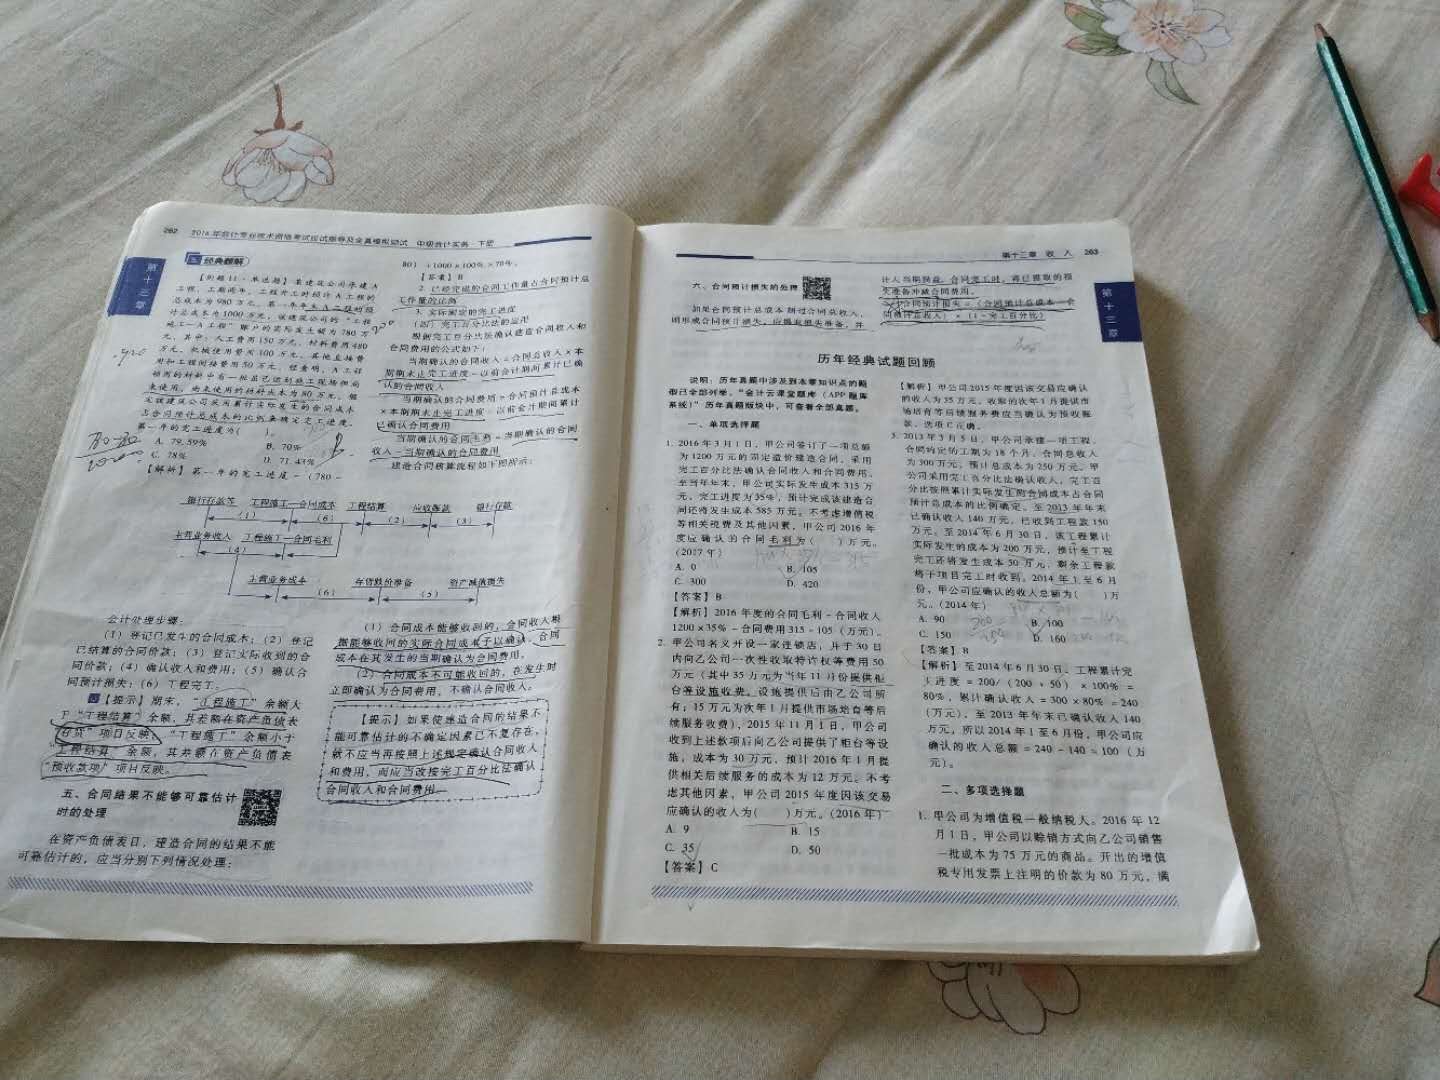 262 2018年会计专业技术资格考试应试指导及全真模拟测试 中级会计实务 下册
第十三章
经典题解
【例题11·单选题】某建设公司承建A
工程，工期两年，工程开工时预计A工程的
总成本为980万元，第一年年末A工程的预
计总成本为1000万元，该建筑公司的“工程
施工—A工程”账户的实际发生额为780万
元，其中：人工费用150万元，材料费用480
万元，机械使用费用100万元，其他直接费
用和工程间接费用50万元。经查明，A工程
领用的材料中有一批虽已运到施工现场但尚
未使用，尚未使用的材料成本为80万元。假
定该建筑公司采用累计实际发生的合同成本
占合同预计总成本的比例来确定完工进度，
第一年的完工进度为(　)。
A. 79.59%　B. 70%
C. 78%　D. 71.43%
【解析】第一年的完工进度=(780-
80)÷1000×100%=70%。
【答案】B
2. 已经完成的合同工作量占合同预计总
工作量的比例
3. 实际测定的完工进度
(四) 完工百分比法的应用
根据完工百分比法确认建造合同收入和
合同费用的公式如下：
当期确认的合同收入=合同总收入×本
期期末止完工进度-以前会计期间累计已确
认的合同收入
当期确认的合同费用=合同预计总成本
×本期期末止完工进度-以前会计期间累计
已确认合同费用
当期确认的合同毛利=当期确认的合同
收入-当期确认的合同费用
建造合同核算流程如下图所示：
银行存款等　工程施工—合同成本　工程结算　应收账款　银行存款
(1)　(6)　(2)　(3)
主营业务收入　工程施工—合同毛利
(4)
主营业务成本　存货跌价准备　资产减值损失
(6)　(5)
会计处理步骤：
(1) 登记已发生的合同成本；(2) 登记
已结算的合同价款；(3) 登记实际收到的合
同价款；(4) 确认收入和费用；(5) 确认合
同预计损失；(6) 工程完工。
【提示】期末，“工程施工”余额大
于“工程结算”余额，其差额在资产负债表
“存货”项目反映；“工程施工”余额小于
“工程结算”余额，其差额在资产负债表
“预收款项”项目反映。
五、合同结果不能够可靠估计
时的处理
在资产负债表日，建造合同的结果不能
可靠估计的，应当分别下列情况处理：
(1) 合同成本能够收回的，合同收入根
据能够收回的实际合同成本予以确认，合同
成本在其发生的当期确认为合同费用。
(2) 合同成本不可能收回的，在发生时
立即确认为合同费用，不确认合同收入。
【提示】如果使建造合同的结果不
能可靠估计的不确定因素已不复存在，
就不应当再按照上述规定确认合同收入
和费用，而应当改按完工百分比法确认
合同收入和合同费用
第十三章 收 入 263
第十三章
六、合同预计损失的处理
如果合同预计总成本超过合同总收入，
则形成合同预计损失，应提取损失准备，并
计入当期损益。合同完工时，将已提取的损
失准备冲减合同费用。
合同预计损失=(合同预计总成本-合
同预计总收入)×(1-完工百分比)
历年经典试题回顾
说明：历年真题中涉及到本章知识点的题
都已全部列举，“会计云课堂题库（APP题库
系统）”历年真题版块中，可查看全部真题。
一、单项选择题
1. 2016年3月1日，甲公司签订了一项总额
为1200万元的固定造价建造合同，采用
完工百分比法确认合同收入和合同费用。
至当年年末，甲公司实际发生成本315万
元，完工进度为35%，预计完成该建造合
同还将发生成本585万元。不考虑增值税
等相关税费及其他因素，甲公司2016年
度应确认的合同毛利为(　)万元。
(2017年)
A. 0　B. 105
C. 300　D. 420
【答案】B
【解析】2016年度的合同毛利=合同收入
1200×35%-合同费用315=105（万元）。
2. 甲公司名义开设一家连锁店，并于30日
内向乙公司一次性收取特许权等费用50
万元（其中35万元为当年11月份提供柜
台等设施收费，设施提供后由乙公司所
有；15万元为次年1月提供市场培育等后
续服务收费），2015年11月1日，甲公司
收到上述款项后向乙公司提供了柜台等设
施，成本为30万元，预计2016年1月提
供相关后续服务的成本为12万元。不考
虑其他因素，甲公司2015年度因该交易
应确认的收入为(　)万元。(2016年)
A. 9　B. 15
C. 35　D. 50
【答案】C
【解析】甲公司2015年度因该交易应确认
的收入为35万元，收取的次年1月提供市
场培育等后续服务费应当确认为预收账
款，选项C正确。
3. 2013年3月5日，甲公司承建一项工程，
合同约定的工期为18个月，合同总收入
为300万元，预计总成本为250万元。甲
公司采用完工百分比法确认收入，完工百
分比按照累计实际发生的合同成本占合同
预计总成本的比例确定。至2013年年末
已确认收入140万元，已收到工程款150
万元。至2014年6月30日，该工程累计
实际发生的成本为200万元，预计至工程
完工还将发生成本50万元，剩余工程款
将于项目完工时收到。2014年1至6月
份，甲公司应确认的收入总额为(　)万
元。(2014年)
A. 90　B. 100
C. 150　D. 160
【答案】B
【解析】至2014年6月30日，工程累计完
工进度=200/(200+50)×100%=
80%，累计确认收入=300×80%=240
(万元)，至2013年年末已确认收入140
万元，所以2014年1至6月份，甲公司应
确认的收入总额=240-140=100（万
元）。
二、多项选择题
1. 甲公司为增值税一般纳税人。2016年12
月1日，甲公司以赊销方式向乙公司销售
一批成本为75万元的商品。开出的增值
税专用发票上注明的价款为80万元，满